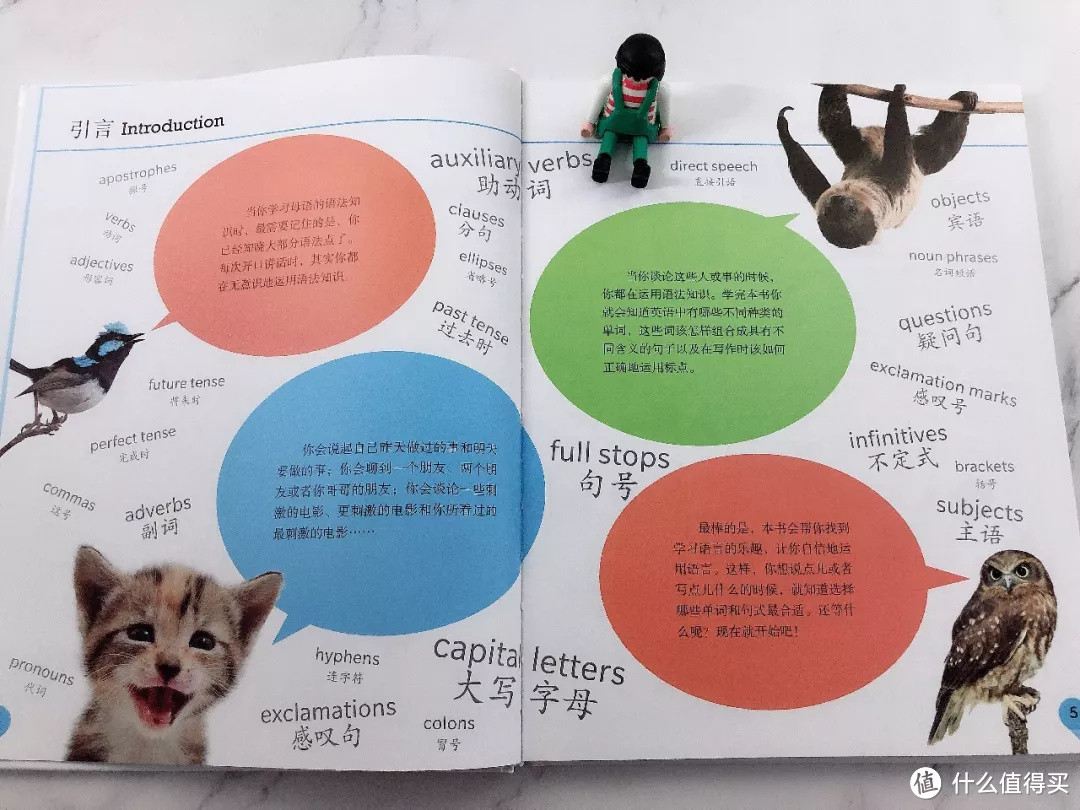 引言 Introduction
apostrophes
撇号
verbs
动词
adjectives
形容词
当你学习母语的语法知
识时，最需要记住的是，你
已经知晓大部分语法点了。
每次开口讲话时，其实你都
在无意识地运用语法知识。
auxiliary verbs
助动词
clauses
分句
ellipses
省略号
past tense
过去时
future tense
将来时
perfect tense
完成时
commas
逗号
adverbs
副词
你会说起自己昨天做过的事和明天
要做的事；你会聊到一个朋友、两个朋
友或者你哥哥的朋友；你会谈论一些刺
激的电影、更刺激的电影和你所看过的
最刺激的电影……
pronouns
代词
hyphens
连字符
exclamations
感叹句
colons
冒号
capital letters
大写字母
direct speech
直接引语
当你谈论这些人或事的时候，
你都在运用语法知识。学完本书你
就会知道英语中有哪些不同种类的
单词，这些词该怎样组合成具有不
同含义的句子以及在写作时该如何
正确地运用标点。
objects
宾语
noun phrases
名词短语
questions
疑问句
exclamation marks
感叹号
infinitives
不定式
brackets
括号
subjects
主语
full stops
句号
最棒的是，本书会帮你找到
学习语言的乐趣，让你自信地运
用语言。这样，你想说点儿或者
写点儿什么的时候，就知道选择
哪些单词和句式最合适。还等什
么呢？现在就开始吧！
5
值 什么值得买